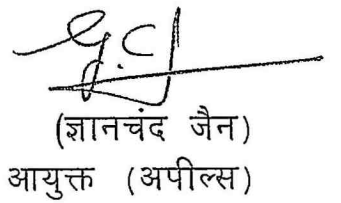 (ज्ञानचंद जैन)
आयुक्त (अपील्स)